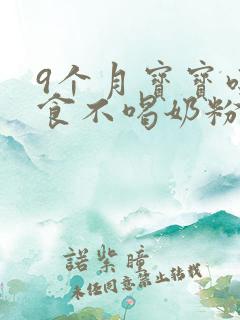 9个月寶寶
食不喝奶粉
諾紫瞳
未经同意禁止转载